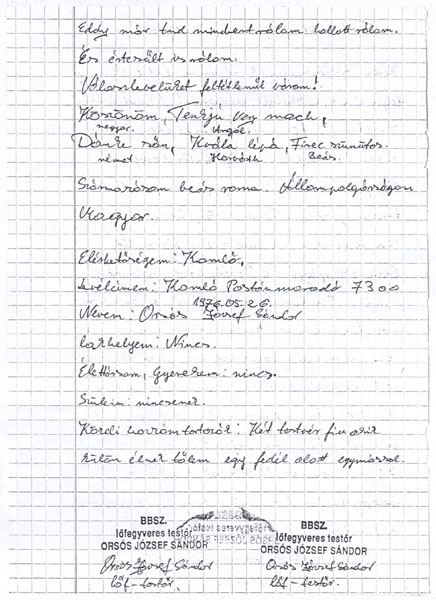 Eddig már tud mindent rólam hallott rólam.
És értesült is rólam.
Válaszlevelüket feltétlenül várom!
Köszönöm, Tenkjú very mach,
magyar. Angol.
Dánke sőn, Hvála lépá, Firec szunutos.
német Horváth Beás.
Származásom beás roma. Állampolgárságom
Magyar.
Elérhetőségem: Komló,
levélcímem: Komló Postán maradó 7300
1976.05.26.
Nevem: Orsós József Sándor
lakhelyem: Nincs.
Élettársam, Gyerekem: nincs.
Szüleim: nincsenek.
Két testvér fiú akik
külön élnek tőlem egy fedél alatt egymással.
BBSZ. BBSZ.
lőfegyveres testőr lőfegyveres testőr
ORSÓS JÓZSEF SÁNDOR ORSÓS JÓZSEF SÁNDOR
Orsós József Sándor Orsós József Sándor
lőf-testőr. lőf-testőr.